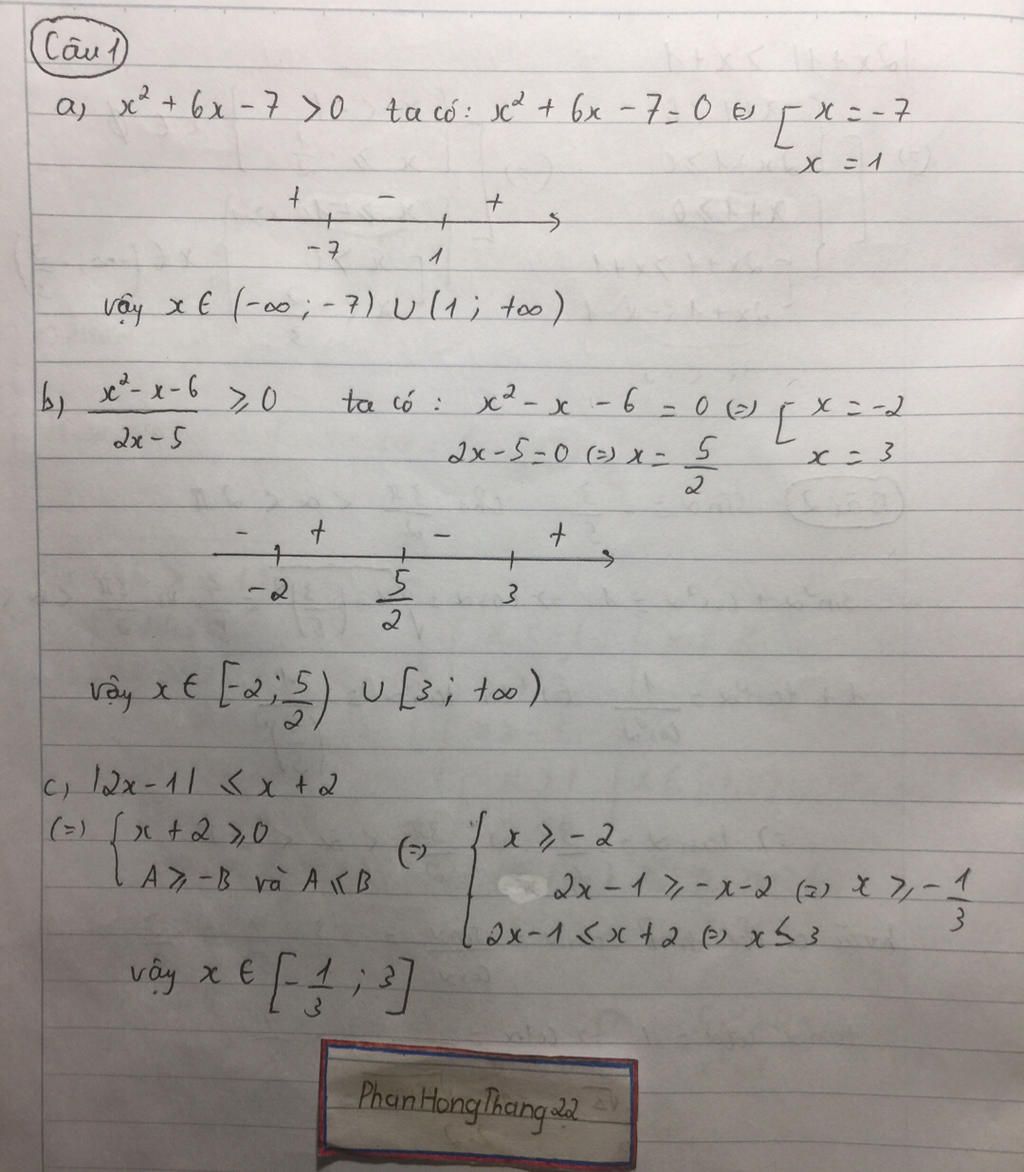 Câu 1
a) x² + 6x - 7 > 0 ta có: x² + 6x - 7 = 0 (=) [ x = -7
x = 1
+ - +
-7 1
vậy x ∈ (-∞; -7) ∪ (1; +∞)
b) (x² - x - 6)/(2x - 5) ≥ 0 ta có: x² - x - 6 = 0 (=) [ x = -2
2x - 5 = 0 (=) x = 5/2 x = 3
- + - +
-2 5/2 3
vậy x ∈ [-2; 5/2) ∪ [3; +∞)
c) |2x - 1| ≤ x + 2
(=) { x + 2 ≥ 0 (=) { x ≥ -2
A ≥ -B và A ≤ B 2x - 1 ≥ -x - 2 (=) x ≥ -1/3
2x - 1 ≤ x + 2 (=) x ≤ 3
vậy x ∈ [-1/3; 3]
PhanHongThang22